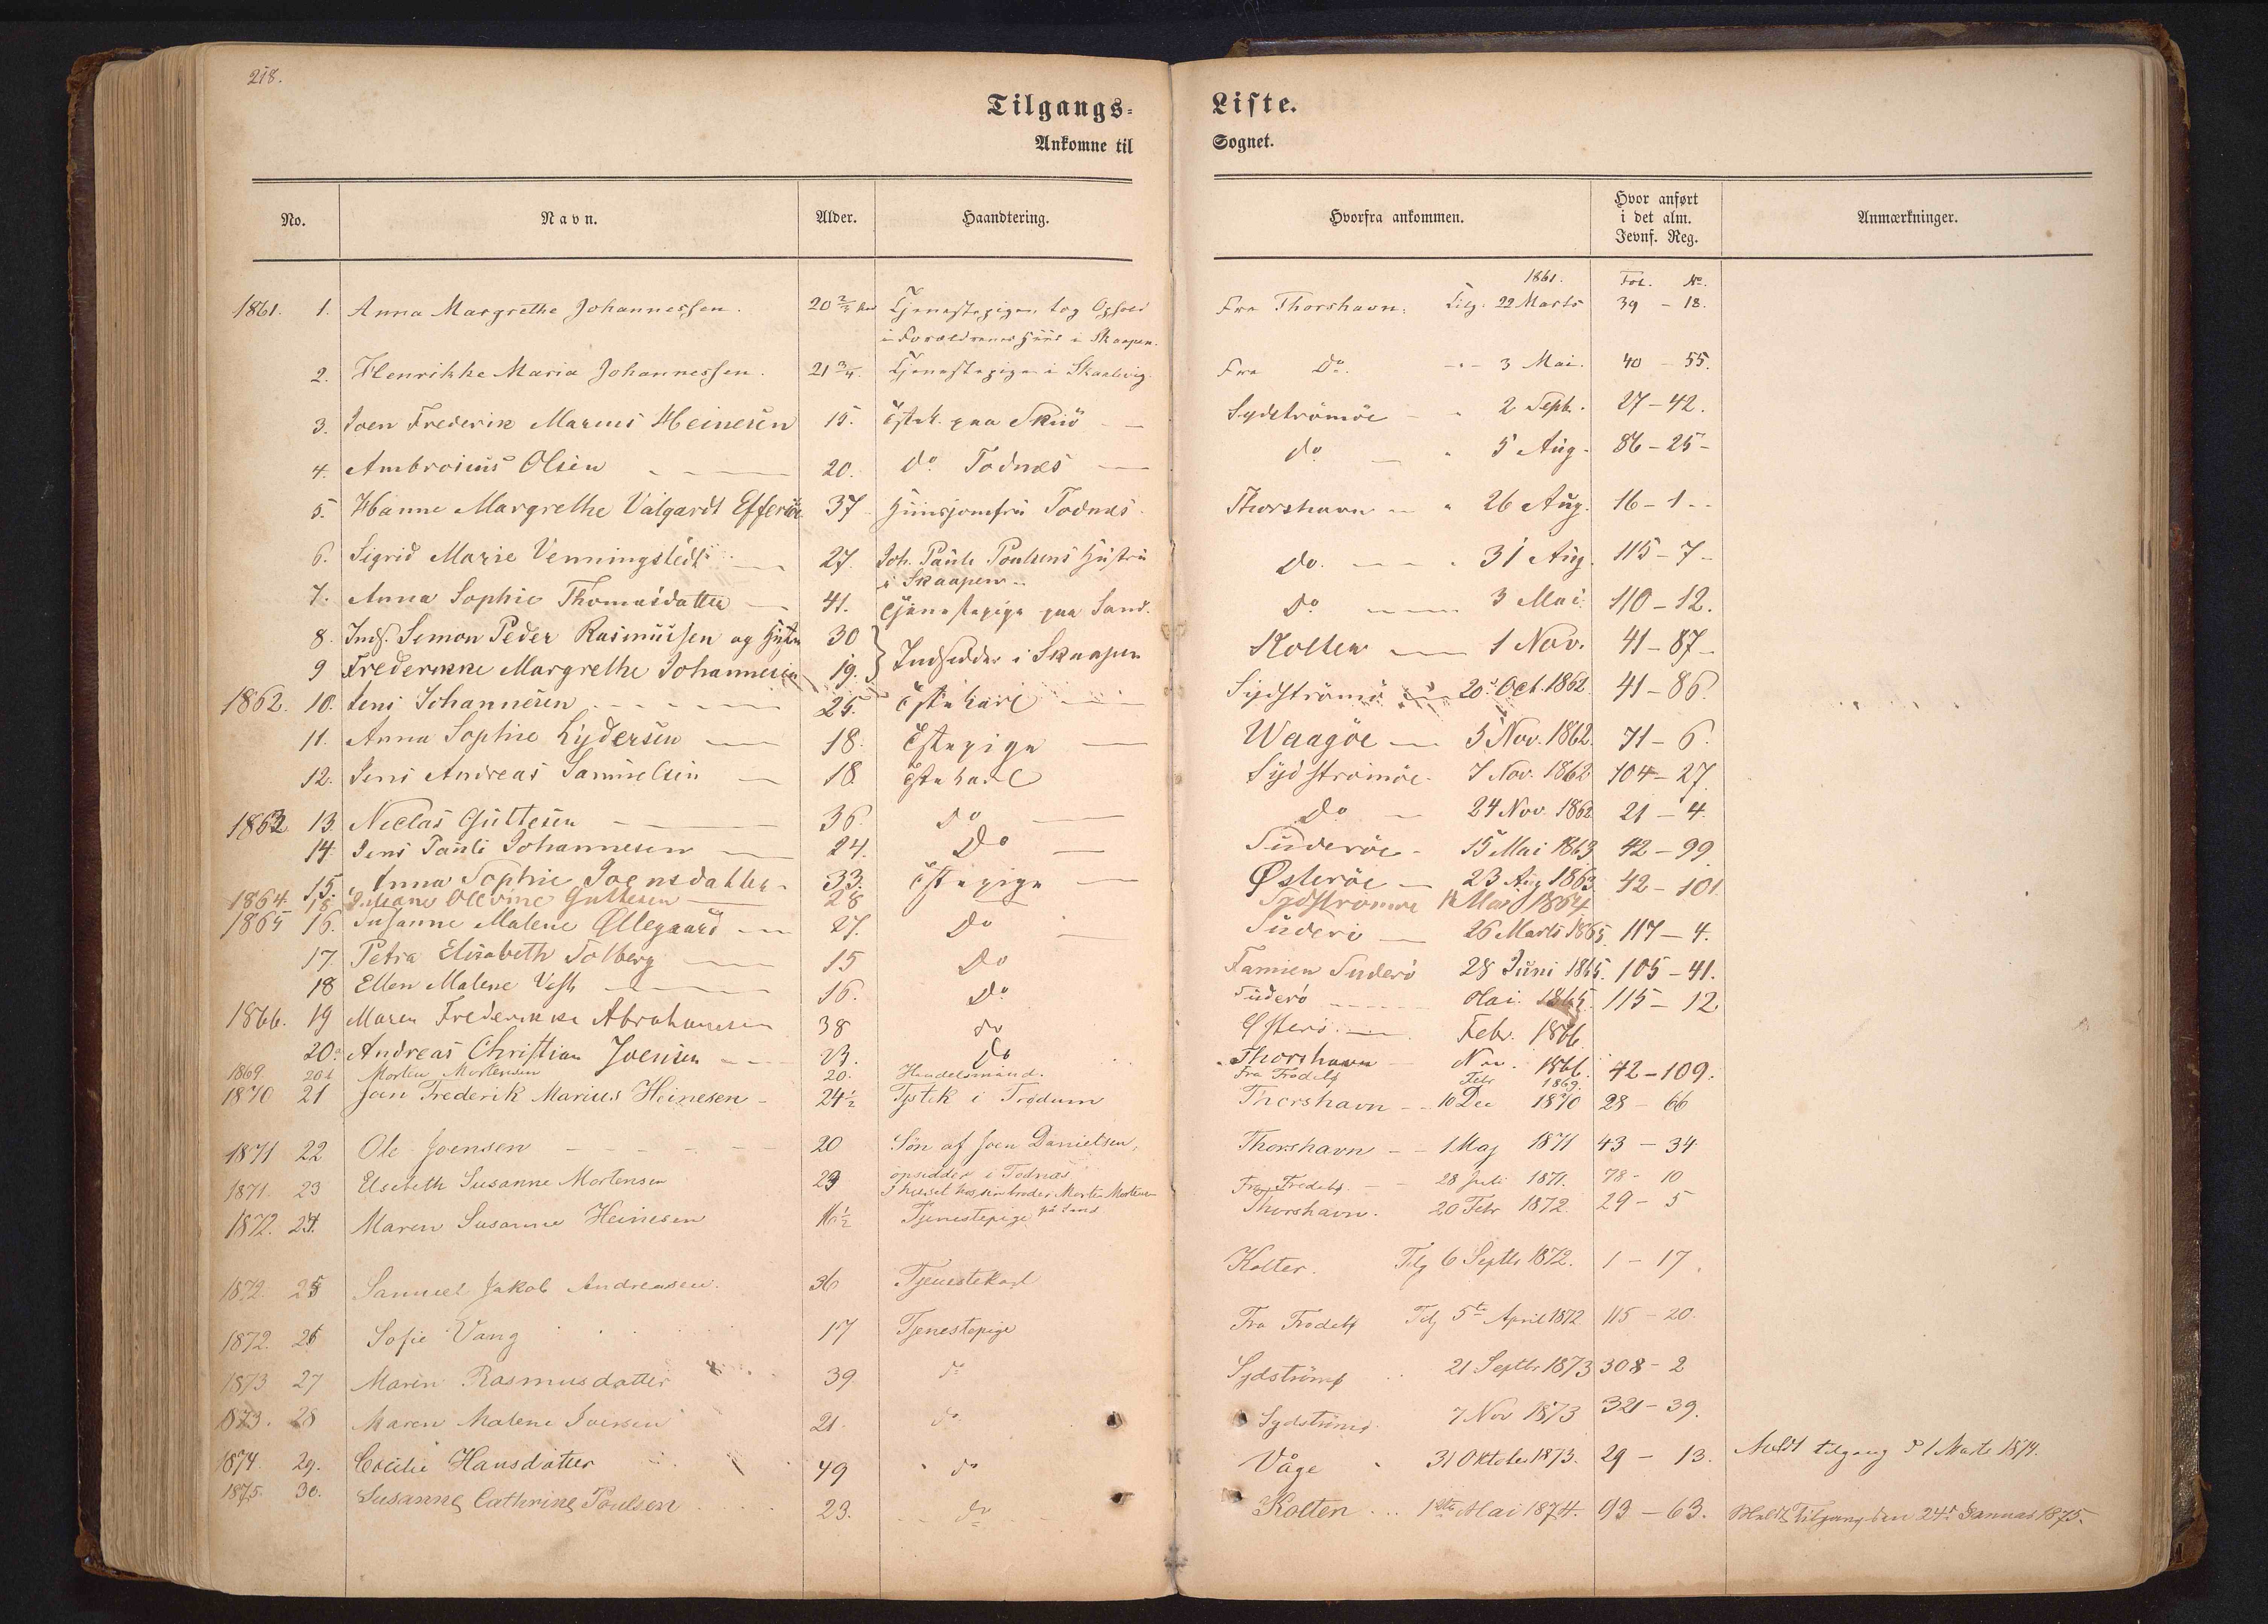 218.
Tilgangs-
Liste.
Ankomne til
Sognet.
No.
Navn.
Alder.
Haandtering.
Hvorfra ankommen.
Hvor anført
i det alm.
Jevnf. Reg.
Anmærkninger.
1861. Fol. No.
1861. 1. Anna Margrethe Johannessen. 20 Tjenestepige, tog Ophold Fra Thorshavn. Tilg. 22 Marts 39 - 18.
i Forældrenes Huus i Skaapen.
2. Henrikke Maria Johannessen. 21 3/4. Tjenestepige i Skaalevig. Fra Do. 3 Mai. 40 - 55.
3. Joen Frederik Marius Heinesen 15. paa Skuö Sydströmöe 2 Sept. 27-42.
4. Ambrosius Olsen 20. do Todnæs do 5 Aug. 86-25-
5. Hanne Margrethe Valgardt Effersöe 37 Huusjomfru Todnæs. Thorshavn 26 Aug. 16-1-
6. Sigrid Marie Venningstedt 27. Joh. Pauli Poulsens Hustru do. 31 Aug. 115-7-
i Skaapen
7. Anna Sophie Thomasdatter 41. Tjenestepige paa Sand. Do 3 Mai. 110-12.
8. Inds. Simon Peder Rasmussen og Hustru 30 Kolter 1 Nov. 41-87-
9 Frederikke Margrethe Johannesen 19. Indsidder i Skaapen
1862. 10. Jens Johannesen 25. Tjstekarl Sydströmö 20 Oct. 1862 41-86.
11. Anna Sophie Lydersen 18. Tjstepige Waagöe 5 Nov. 1862. 71-6.
12. Jens Andreas Samuelsen 18 Tjstekarl Sydströmöe 7 Nov. 1862 104-27
1863 13. Niclas Guttesen 36. do do 24 Nov. 1862 21-4.
14. Jens Pauli Johannesen 24. Do Suderöe 15 Mai 1863 42-99
15. Anna Sophie Joensdatter 33. Tjstepige Østeröe 23 Aug 1863 42-101
1864. Juliane Olevine Guttesen 28 Sydströmöe Mai 1864
1865 16. Susanne Malene Øllegaard 27. do Suderö 26 Marts 1865. 117-4.
17. Petra Elisabeth Solberg 15 do Famien Suderö 28 Juni 1865. 105-41.
18 Ellen Malene Vesth 16. Do. Suderö Mai. 1865. 115-12
1866. 19 Maren Frederikke Abrahamsen 38 do Østerö Febr. 1866.
20a Andreas Christian Joensen 23. Do Thorshavn Nov. 1866. 42-109.
1869. 20b Morten Mortensen 20. Handelsmand. Fra Frodebø Febr 1869.
1870 21 Joen Frederik Marius Heinesen 24½ Tjstek i Trödum Thorshavn 10 Dec 1870 28 - 66
1871 22 Ole Joensen 20 Søn af Joen Danielsen, Thorshavn 1 Maj 1871 43 - 34
opsidder i Todnæs
1871. 23 Elsebeth Susanne Mortensen 29 I huset hos sin broder Morten Mortensen Fra Frodebø 28 Juli 1871. 78 - 10
på Sand
1872. 24. Maren Susanne Heinesen 16½ Tjenestepige Thorshavn. 20 Febr 1872. 29 - 5
1872. 25 Samuel Jakob Andreasen. 36 Tjenestekarl Kolter. Tilg 6 Septbr 1872. 1 - 17.
1872. 26 Sofie Vang 17 Tjenestepige Fra Frodebø Tilg 5te April 1872 115 - 20.
1873 27 Maren Rasmusdatter 39. do Sydströmø 21 Septbr 1873 308 - 2
1873. 28 Maren Malene Joensen 21. do Sydströmö. 7 Nov 1873 321 - 39.
1874. 29. Cecilie Hansdatter 49 do Våge 31 Oktober 1873. 29 - 13. Meldt tilgang d 1 Marts 1874.
1875. 30. Susanne Cathrine Poulsen 23. do Kolten 1ste Mai 1874. 93 - 63. Meldt Tilgang den 24d Januar 1875.